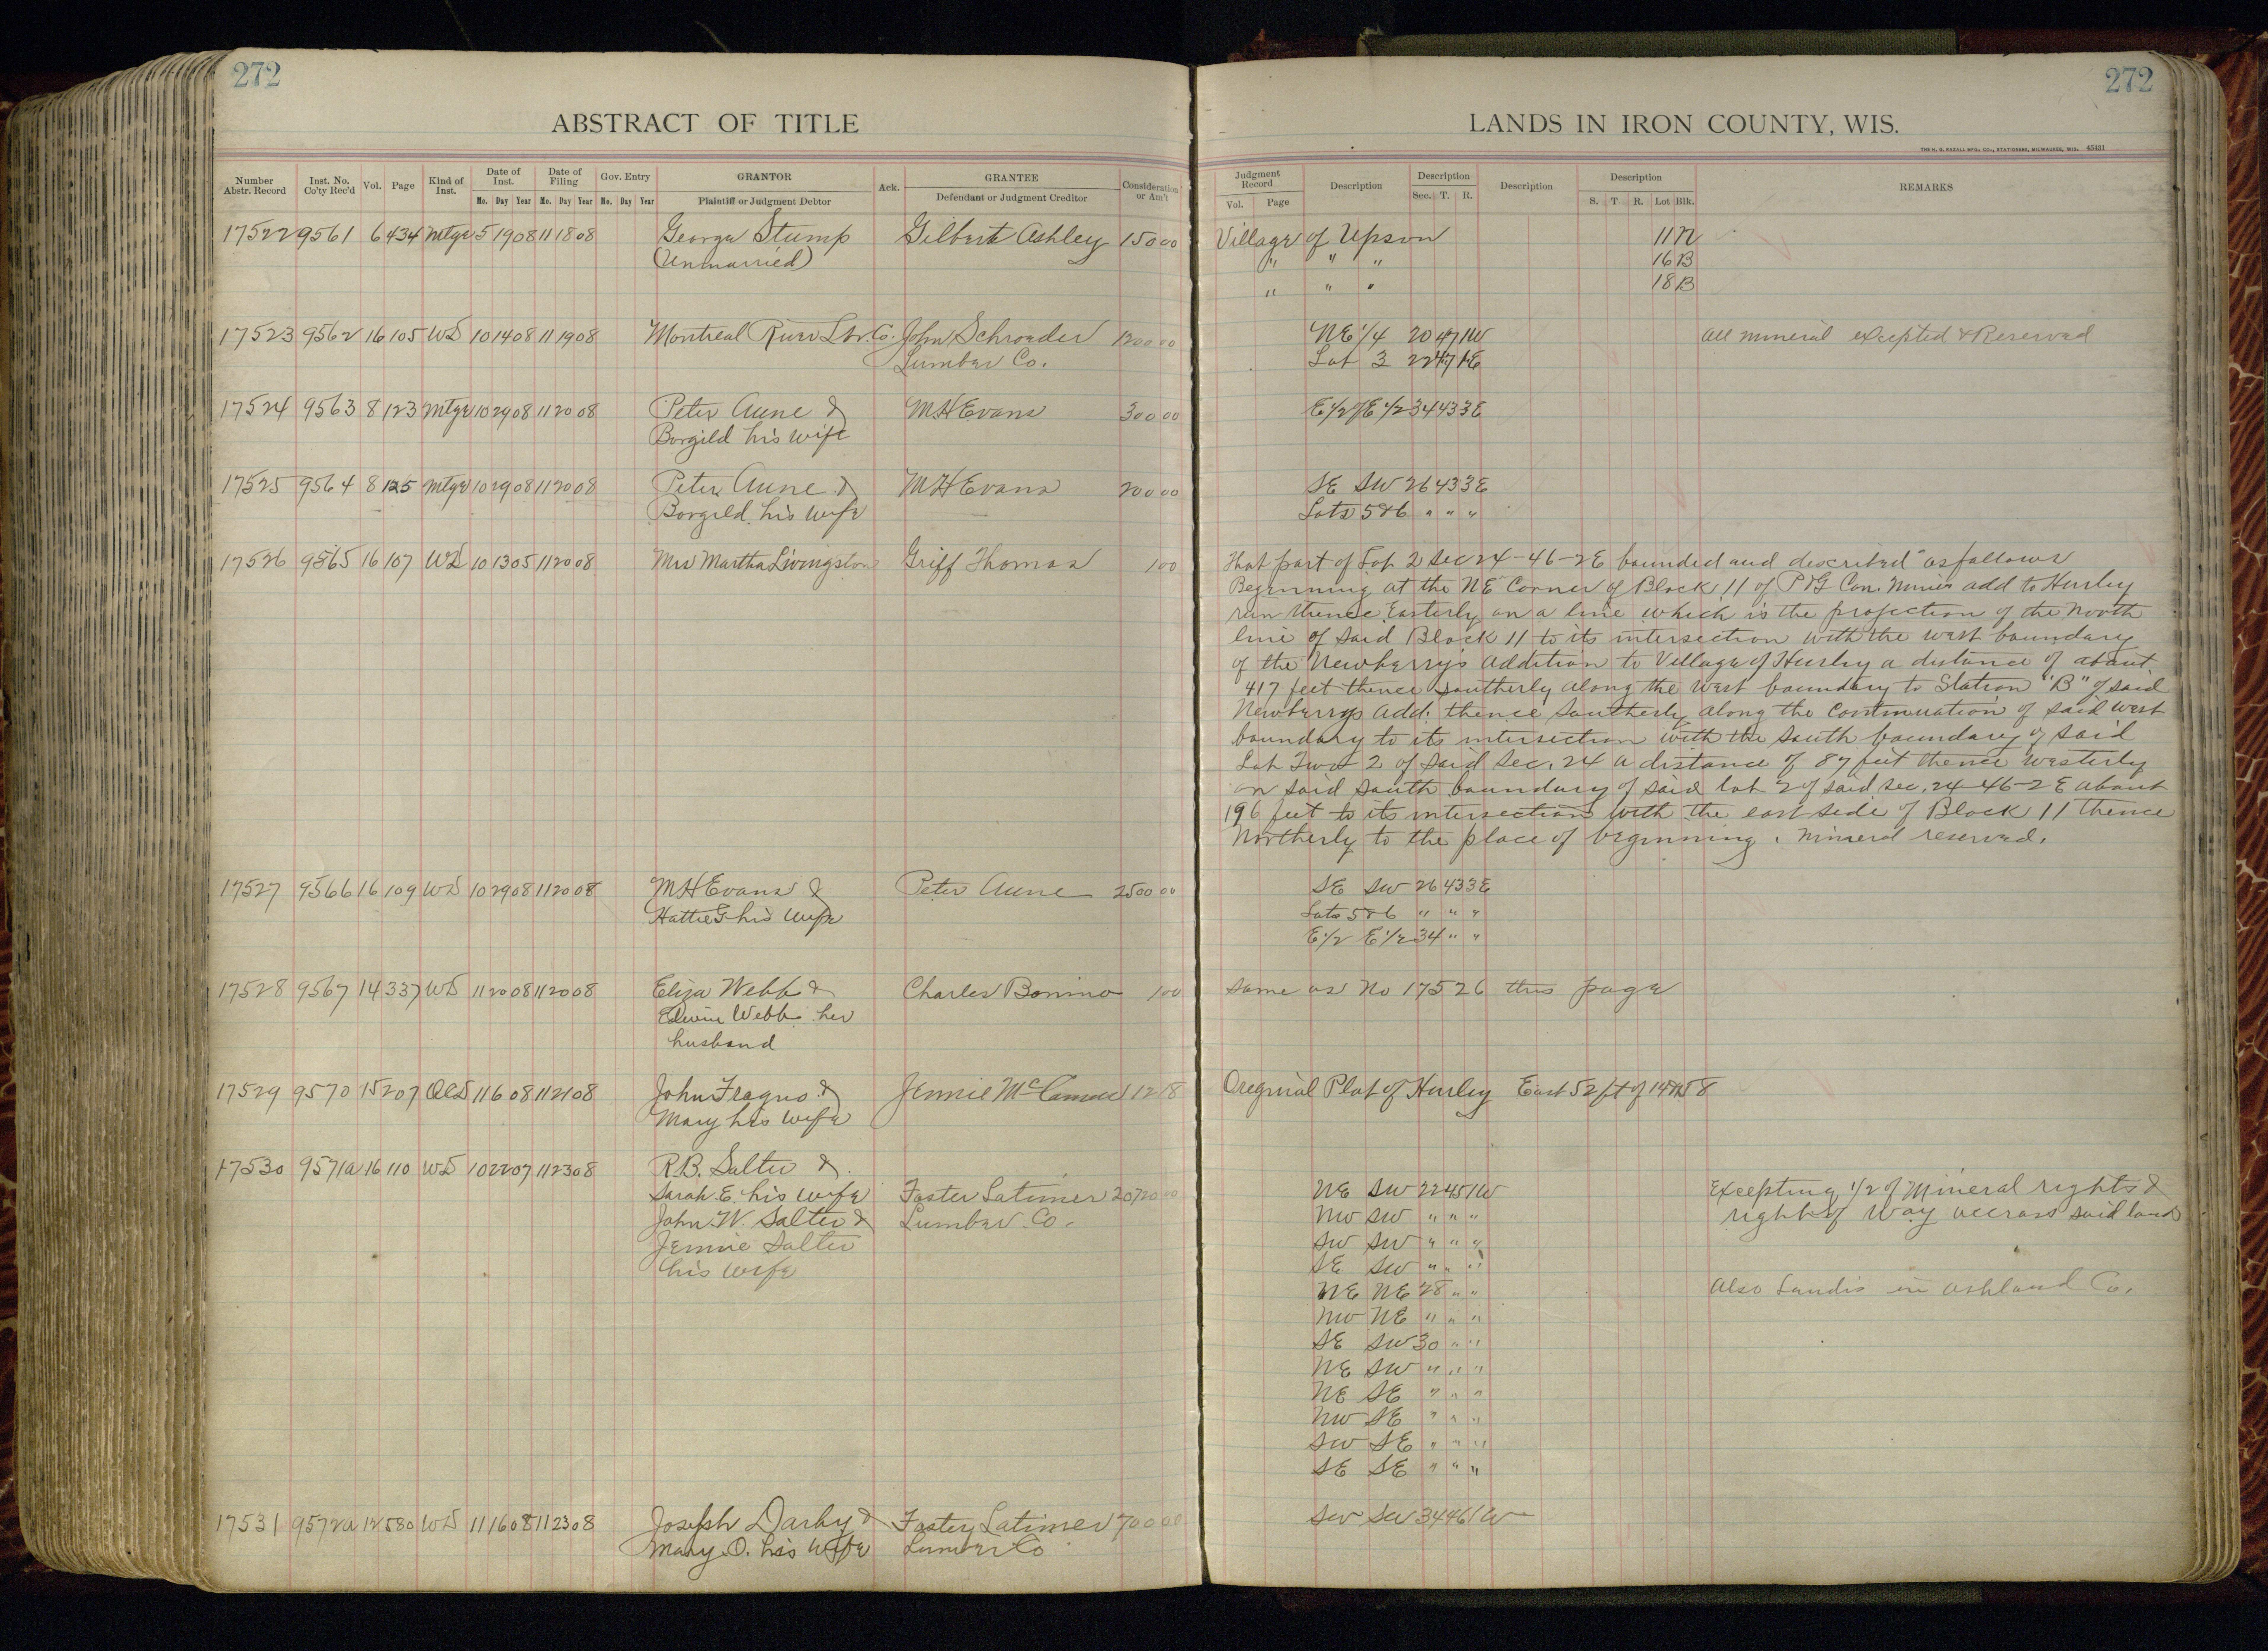 272
ABSTRACT OF TITLE
Number Abstr. Record Inst. No. Co'ty Rec'd Vol. Page Kind of Inst. Date of Inst. Mo. Day Year Date of Filing Mo. Day Year Gov. Entry Mo. Day Year GRANTOR Plaintiff or Judgment Debtor Ack. GRANTEE Defendant or Judgment Creditor Consideration or Am't
17522 9561 6 434 Mtge 5 19 08 11 18 08 George Stump Gilbert Ashley 150 00
(Unmarried)
17523 9562 16 105 WD 10 14 08 11 19 08 Montreal River Lbr. Co. John Schroeder 1200 00
Lumber Co.
17524 9563 8 123 Mtge 10 29 08 11 20 08 Peter Aune & MH Evans 300 00
Borgild his wife
17525 9564 8 125 Mtge 10 29 08 11 20 08 Peter Aune & MH Evans 200 00
Borgild his wife
17526 9565 16 107 WD 10 13 05 11 20 08 Mrs Martha Livingston Griff Thomas 1 00
17527 9566 16 109 WD 10 29 08 11 20 08 MH Evans & Peter Aune 2500 00
Hattie G his wife
17528 9567 14 337 WD 11 20 08 11 20 08 Eliza Webb & Charles Bonino 1 00
Edwin Webb her
husband
17529 9570 15 207 QCD 11 6 08 11 21 08 John Fragno & Jennie 12 18
Mary his wife
17530 9571a 16 110 WD 10 22 07 11 23 08 R.B. Salter &
Sarah E. his wife Foster Latimer 20720 00
John W. Salter & Lumber Co.
Jennie Salter
his wife
17531 9572a 12 580 WD 11 16 08 11 23 08 Joseph Darby & Foster Latimer 700 00
Mary O. his wife Lumber Co
272
LANDS IN IRON COUNTY, WIS.
THE H. G. RAZALL MFG. CO., STATIONERS, MILWAUKEE, WIS. 45431
Judgment Record Vol. Page Description Description Sec. T. R. Description Description S. T. R. Lot Blk. REMARKS
Village of Upson 11 N
" " " 16 B
" " " 18 B
NE 1/4 20 47 1W All mineral excepted & Reserved
Lot 3 22 47 1E
E 1/2 of E 1/2 34 43 3E
SE SW 26 43 3E
Lots 5&6 " " "
That part of Lot 2 Sec 24-46-2E bounded and described as follows
Beginning at the NE Corner of Block 11 of P&G Con. Mines add to Hurley
run thence Easterly on a line which is the projection of the North
line of said Block 11 to its intersection with the west boundary
of the Newberry's Addition to Village of Hurley a distance of about
417 feet thence southerly along the west boundary to Station "B" of said
Newberrys Add. thence Southerly along the continuation of said west
boundary to its intersection with the South boundary of said
Lot Two 2 of said Sec. 24 a distance of 87 feet thence Westerly
on said south boundary of said lot 2 of said sec. 24-46-2E about
196 feet to its intersection with the east side of Block 11 thence
Northerly to the place of beginning. Mineral reserved.
SE SW 26 43 3E
Lots 5&6 " " "
E 1/2 E 1/2 34 " "
Same as No 17526 this page
Original Plat of Hurley East 52 ft of 14 8
NE SW 22 45 1W Excepting 1/2 of Mineral rights &
NW SW " " " right of Way accross said lands
SW SW " " "
SE SW " " "
NE NE 28 " " Also Lands in Ashland Co.
NW NE " " "
SE SW 30 " "
NE SW " " "
NE SE " " "
NW SE " " "
SW SE " " "
SE SE " " "
SW SW 34 46 1W